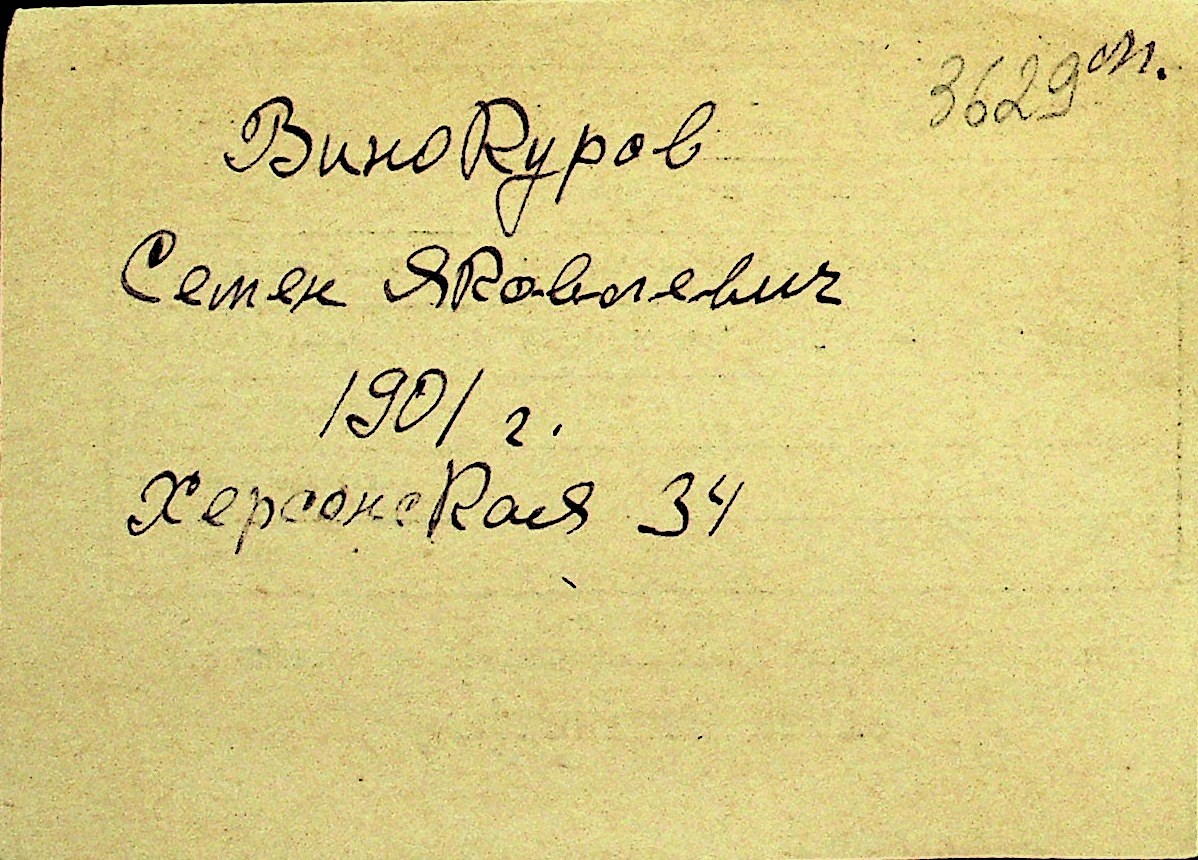 3629 сп.
Винокуров
Семен Яковлевич
1901 г.
Херсонская 34